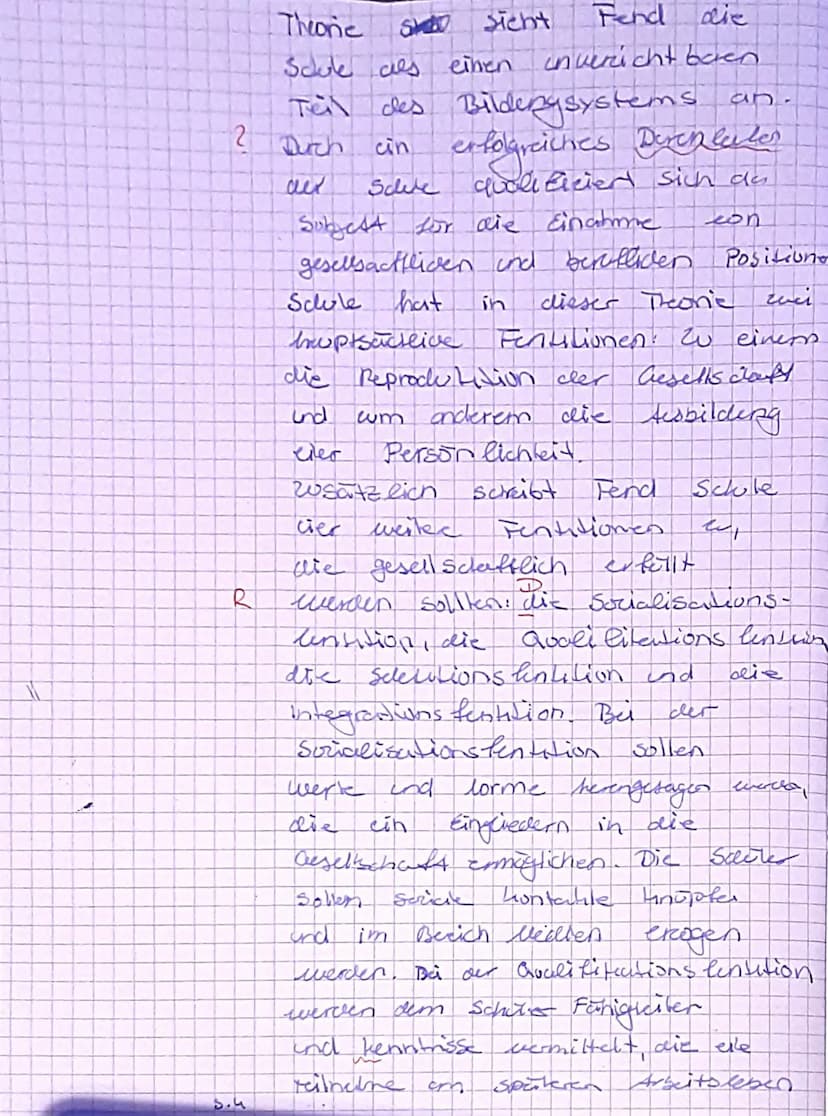 Theorie sieht Fend die
Schule als einen unverzichtbaren
Teil des Bildungssystems an.
? Durch ein erfolgreiches Durchlaufen
der Schule qualifiziert sich das
Subjekt für die Einahme von
gesellschaftlichen und beruflichen Positionen
Schule hat in dieser Theorie zwei
hauptsächliche Funktionen: Zu einem
die Reproduktion der Gesellschaft
und zum anderem die Ausbildung
der Persönlichkeit.
Zusätzlich schreibt Fend Schule
vier weitere Funktionen zu,
die gesellschaftlich erfüllt
R werden sollten: die Sozialisations-
funktion, die Qualifikationsfunktion
die Selektionsfunktion und die
Integrationsfunktion. Bei der
Sozialisationsfunktion sollen
Werte und Norme werden,
die ein Eingliedern in die
Gesellschaft ermöglichen. Die Schüler
sollen soziale Kontakte knüpfen
und im Bereich erzogen
werden. Bei der Qualifikationsfunktion
werden dem Schüler Fähigkeiten
und kenntnisse vermittelt, die eine
teilnahme am späteren Arbeitsleben
S.4